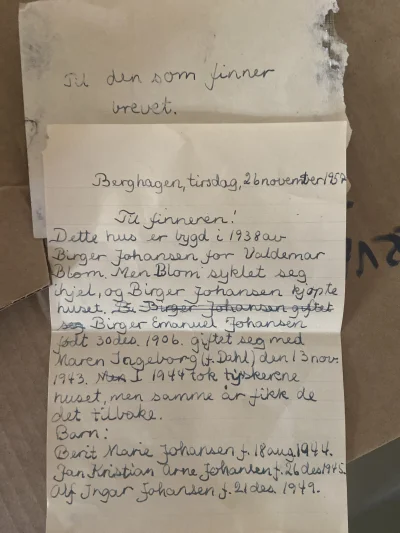 Til den som finner
brevet.
Berghagen, tirsdag, 26 november 1957
Til finneren!
Dette hus er bygd i 1938 av
Birger Johansen for Valdemar
Blom. Men Blom syklet seg
ihjel, og Birger Johansen kjøpte
huset. Birger Johansen giftet
seg Birger Emanuel Johansen
født 30 des. 1906. giftet seg med
Maren Ingeborg (f. Dahl) den 13 nov.
1943. I 1944 tok tyskerne
huset, men samme år fikk de
det tilbake.
Barn:
Berit Marie Johansen f. 18 aug. 1944.
Jan Kristian Arne Johansen f. 26 des 1945.
Alf Ingar Johansen f. 21 des. 1949.